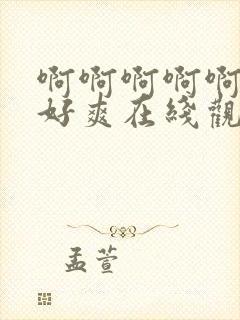 啊啊啊啊啊
好爽在綫觀
孟萱